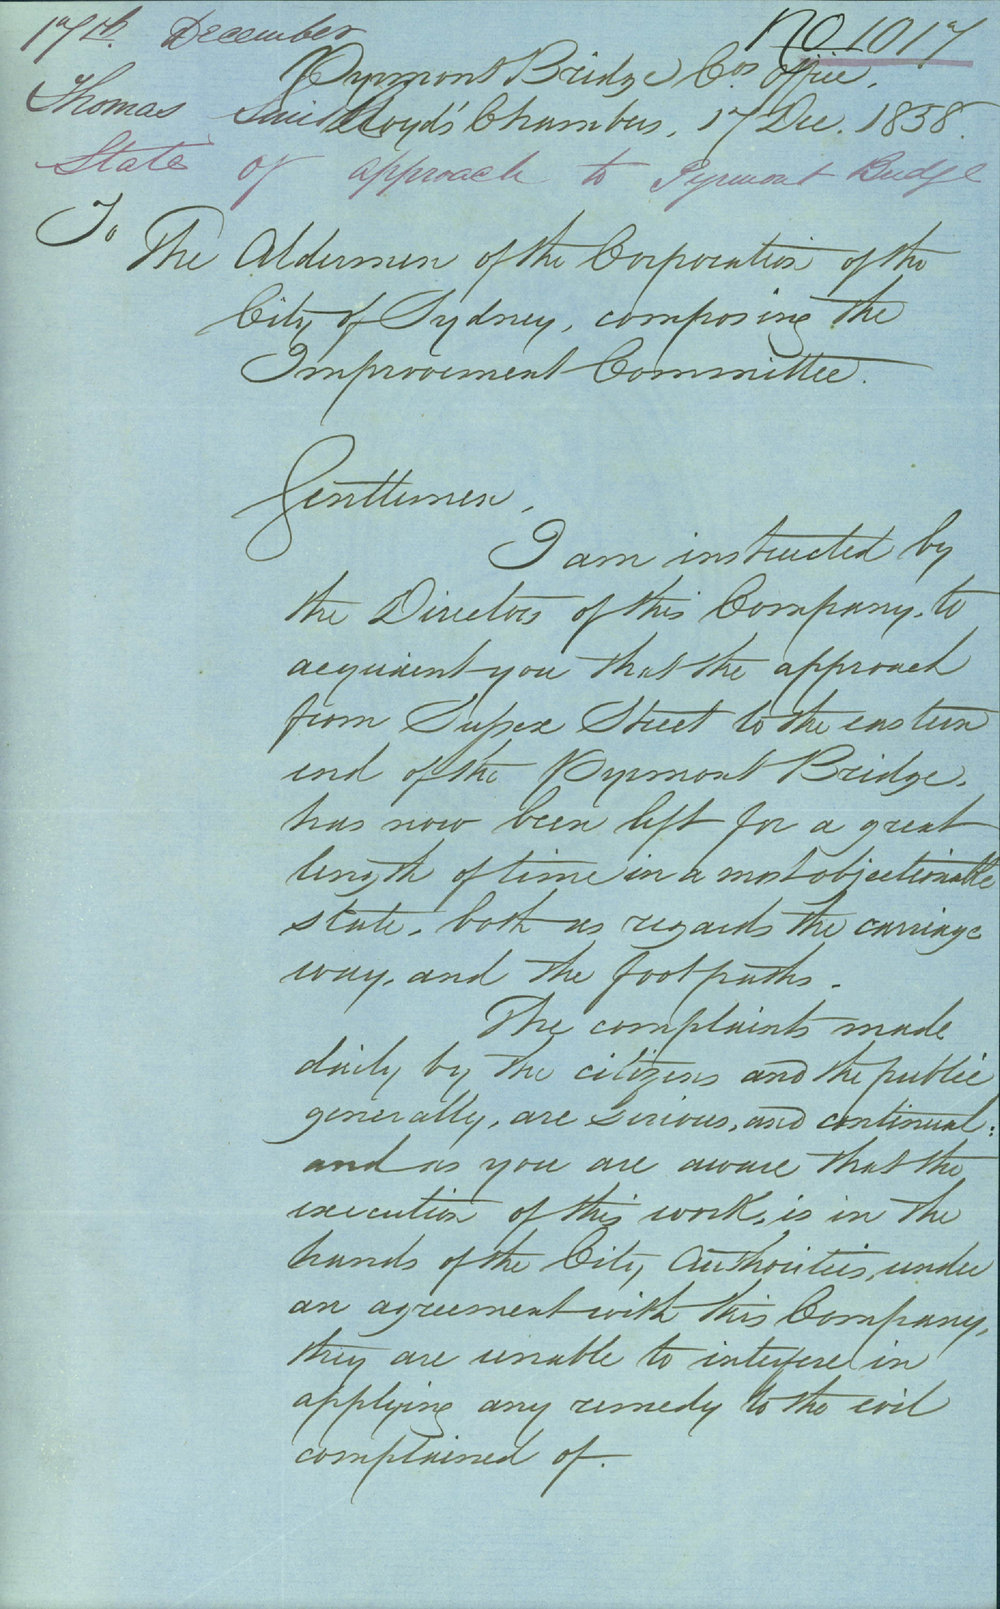 17th. December
No 1017
Pyrmont Bridge Cos. Office,
Thomas Smith
Lloyd's Chambers, 17 Dec. 1858.
State of approach to Pyrmont Bridge
To
The Aldermen of the Corporation of the
City of Sydney, composing the
Improvement Committee.
Gentlemen,
I am instructed by
the Directors of this Company, to
acquaint you that the approach
from Sussex Street to the eastern
end of the Pyrmont Bridge,
has now been left for a great
length of time in a most objectionable
state, both as regards the carriage
way, and the footpaths.
The complaints made
daily by the citizens and the public
generally, are serious, and continual:
and as you are aware that the
execution of this work, is in the
hands of the City Authorities, under
an agreement with this Company,
they are unable to interfere in
applying any remedy to the evil
complained of.